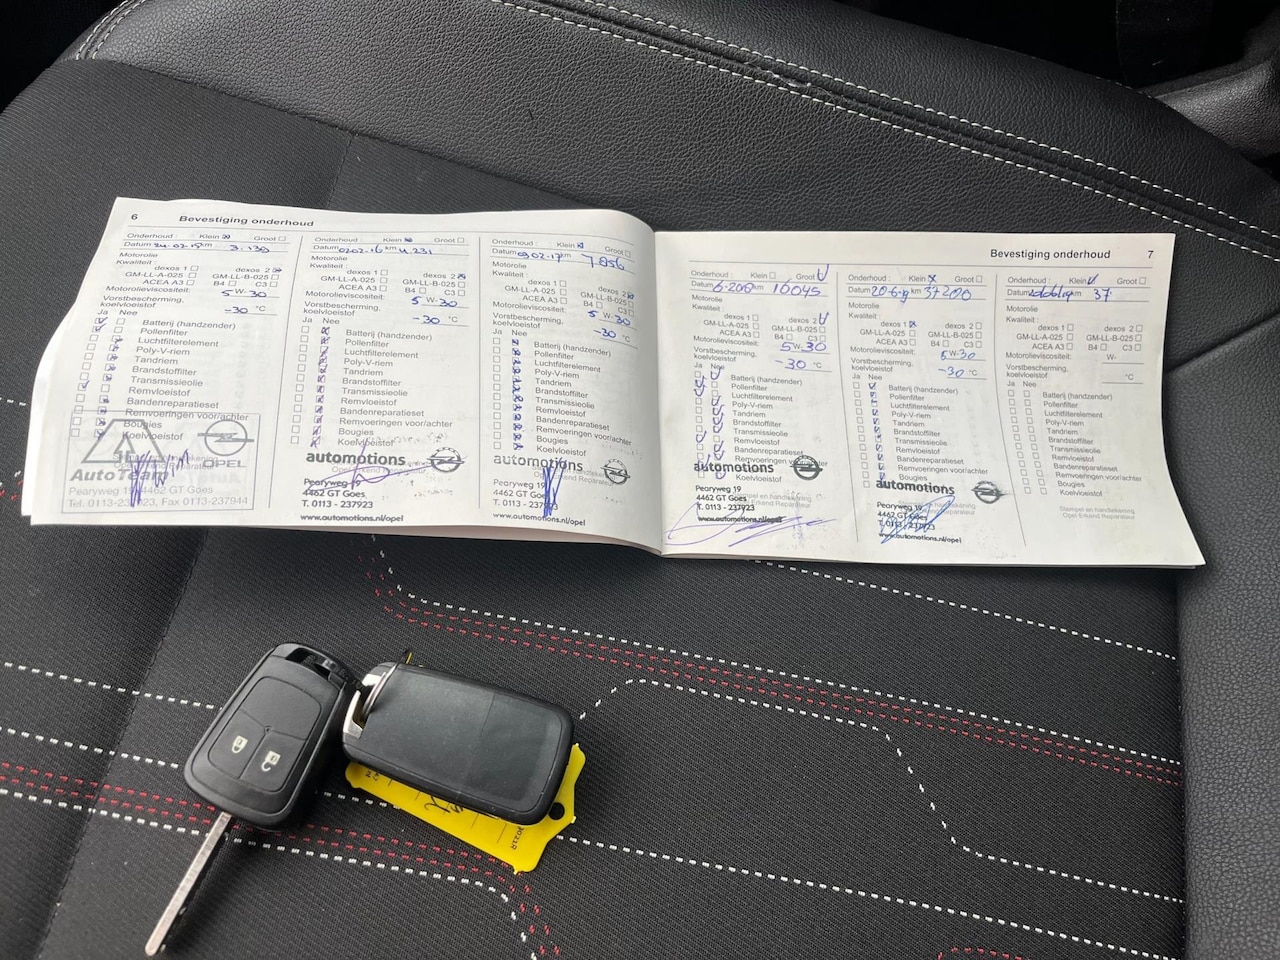 6 Bevestiging onderhoud
Onderhoud : Klein Groot
Datum km 3.130
Motorolie
Kwaliteit :
dexos 1 dexos 2
GM-LL-A-025 GM-LL-B-025
ACEA A3 B4 C3
Motorolieviscositeit: 5 W-30
Vorstbescherming,
koelvloeistof -30 °C
Ja Nee
Batterij (handzender)
Pollenfilter
Luchtfilterelement
Poly-V-riem
Tandriem
Brandstoffilter
Transmissieolie
Remvloeistof
Bandenreparatieset
Remvoeringen voor/achter
Bougies
Koelvloeistof
Auto Team OPEL
Pearyweg 19, 4462 GT Goes
Tel. 0113-237923, Fax 0113-237944
Onderhoud : Klein Groot
Datum 0202-16 km 4.231
Motorolie
Kwaliteit :
dexos 1 dexos 2
GM-LL-A-025 GM-LL-B-025
ACEA A3 B4 C3
Motorolieviscositeit: 5 W-30
Vorstbescherming,
koelvloeistof -30 °C
Ja Nee
Batterij (handzender)
Pollenfilter
Luchtfilterelement
Poly-V-riem
Tandriem
Brandstoffilter
Transmissieolie
Remvloeistof
Bandenreparatieset
Remvoeringen voor/achter
Bougies
Koelvloeistof
automotions
Pearyweg
4462 GT Goes
T. 0113 - 237923
www.automotions.nl/opel
Onderhoud : Klein Groot
Datum 09.02-17 km 7.856
Motorolie
Kwaliteit :
dexos 1 dexos 2
GM-LL-A-025 GM-LL-B-025
ACEA A3 B4 C3
Motorolieviscositeit: 5 W-30
Vorstbescherming,
koelvloeistof -30 °C
Ja Nee
Batterij (handzender)
Pollenfilter
Luchtfilterelement
Poly-V-riem
Tandriem
Brandstoffilter
Transmissieolie
Remvloeistof
Bandenreparatieset
Remvoeringen voor/achter
Bougies
Koelvloeistof
automotions
Pearyweg 19
4462 GT Goes
T. 0113 - 237923
www.automotions.nl/opel
Bevestiging onderhoud 7
Onderhoud : Klein Groot
Datum km 10045
Motorolie
Kwaliteit :
dexos 1 dexos 2
GM-LL-A-025 GM-LL-B-025
ACEA A3 B4 C3
Motorolieviscositeit: 5 W-30
Vorstbescherming,
koelvloeistof -30 °C
Ja Nee
Batterij (handzender)
Pollenfilter
Luchtfilterelement
Poly-V-riem
Tandriem
Brandstoffilter
Transmissieolie
Remvloeistof
Bandenreparatieset
Remvoeringen voor/achter
Bougies
Koelvloeistof
automotions
Pearyweg 19
4462 GT Goes
T. 0113 - 237923
www.automotions.nl/opel
Onderhoud : Klein Groot
Datum 20-6-19 km 37200
Motorolie
Kwaliteit :
dexos 1 dexos 2
GM-LL-A-025 GM-LL-B-025
ACEA A3 B4 C3
Motorolieviscositeit: 5 W-30
Vorstbescherming,
koelvloeistof -30 °C
Ja Nee
Batterij (handzender)
Pollenfilter
Luchtfilterelement
Poly-V-riem
Tandriem
Brandstoffilter
Transmissieolie
Remvloeistof
Bandenreparatieset
Remvoeringen voor/achter
Bougies
automotions
Pearyweg 19
4462 GT Goes
T. 0113 - 237923
www.automotions.nl/opel
Onderhoud : Klein Groot
Datum km 37
Motorolie
Kwaliteit :
dexos 1 dexos 2
GM-LL-A-025 GM-LL-B-025
ACEA A3 B4 C3
Motorolieviscositeit: W-
Vorstbescherming,
koelvloeistof °C
Ja Nee
Batterij (handzender)
Pollenfilter
Luchtfilterelement
Poly-V-riem
Tandriem
Brandstoffilter
Transmissieolie
Remvloeistof
Bandenreparatieset
Remvoeringen voor/achter
Bougies
Koelvloeistof
Stempel en handtekening
Opel Erkend Reparateur